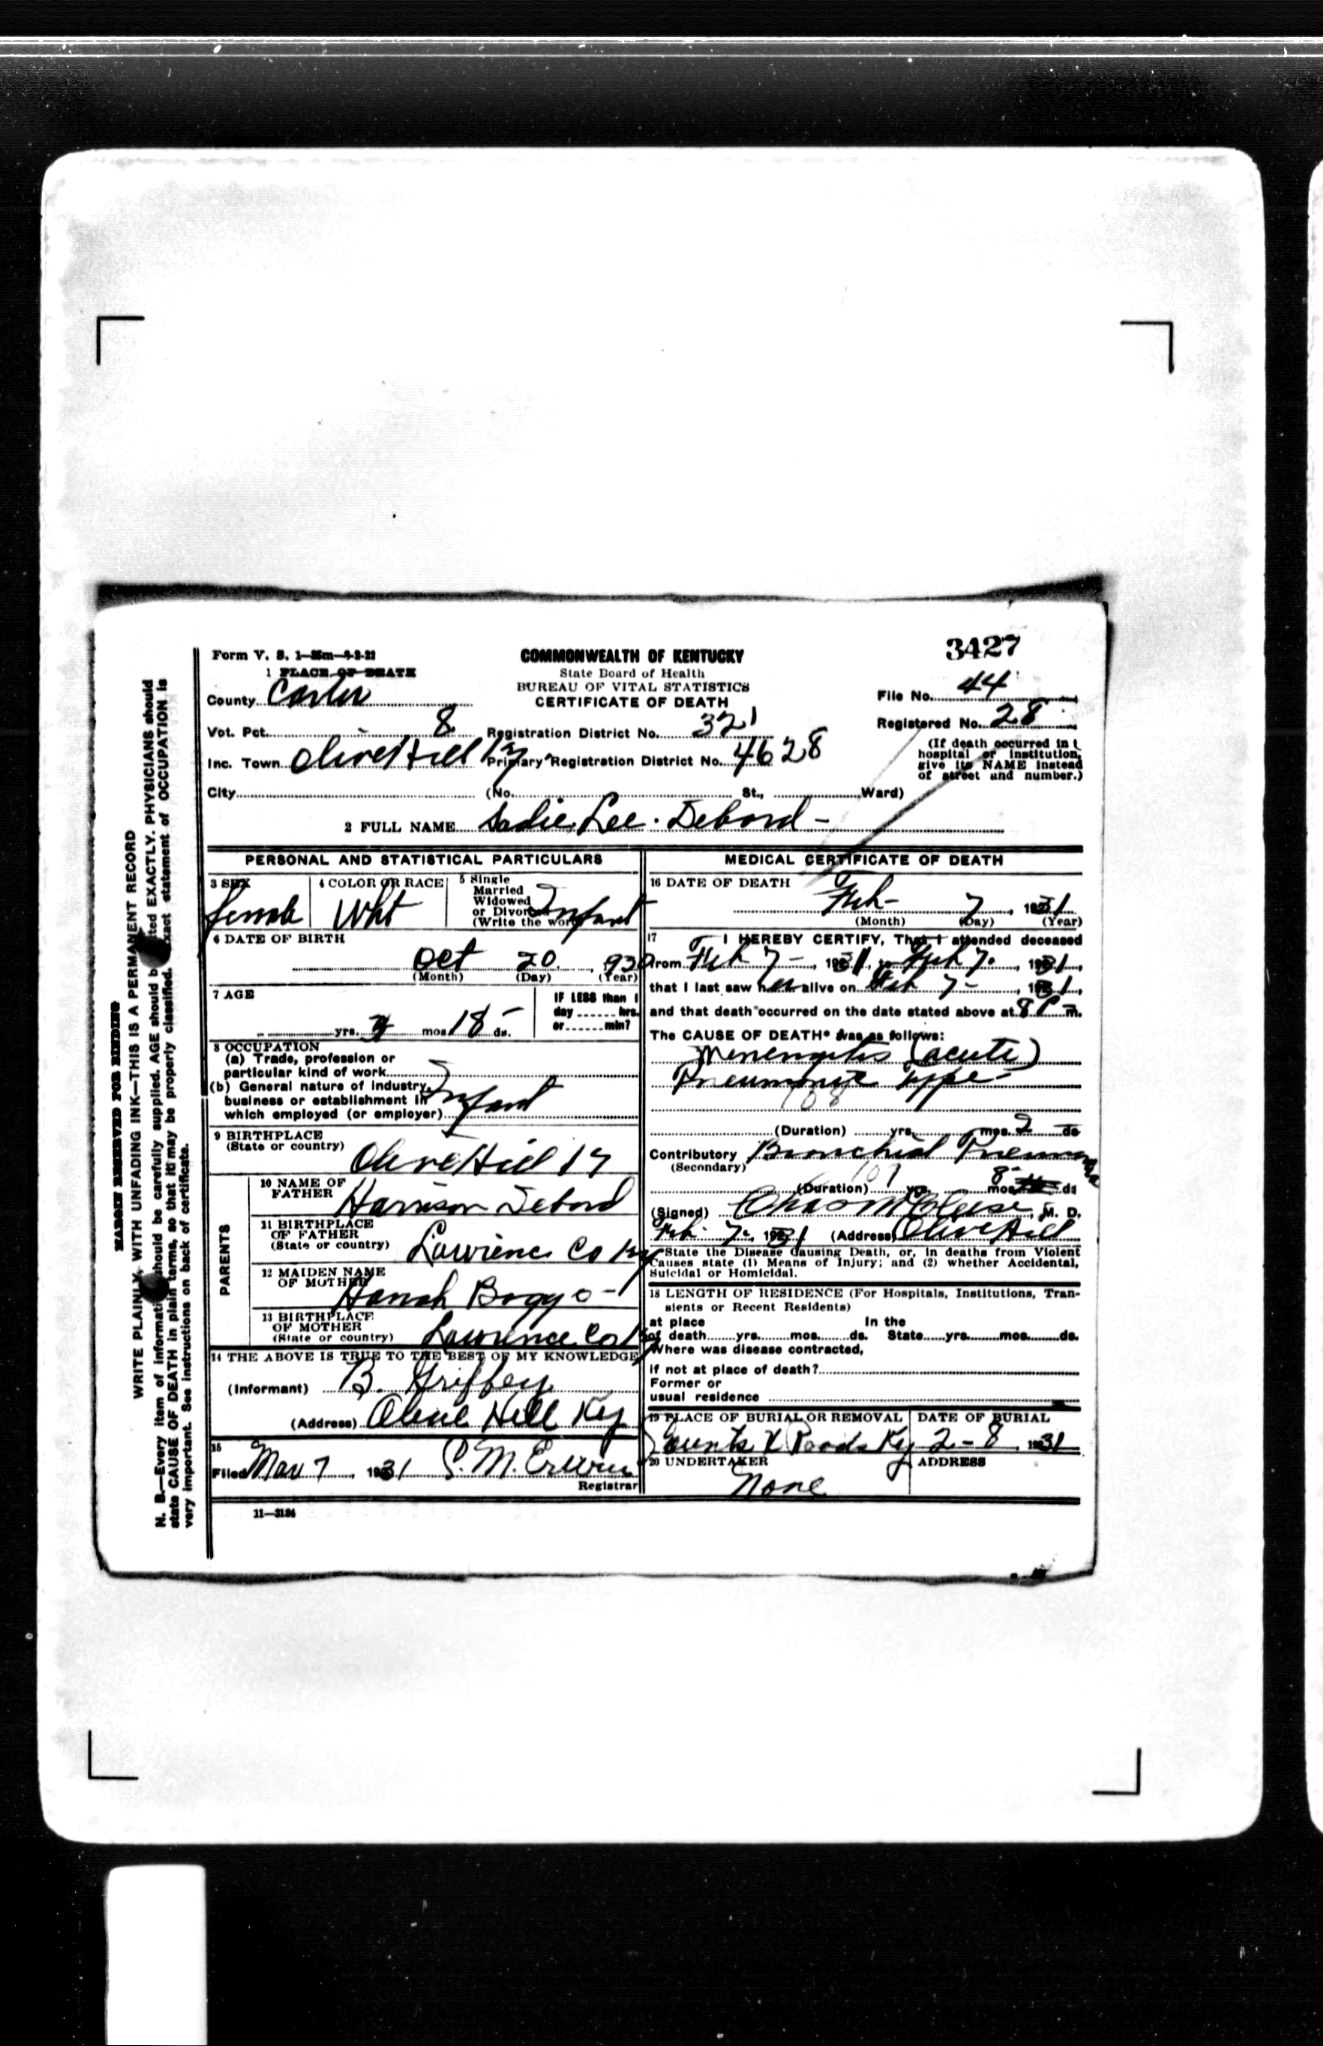 3427
Form V. S. 1—25m—4-2-22
COMMONWEALTH OF KENTUCKY
State Board of Health
BUREAU OF VITAL STATISTICS
CERTIFICATE OF DEATH
1 PLACE OF DEATH
County Carter
File No. 44
Registered No. 28
Vot. Pct. 8 Registration District No. 321
Inc. Town Olive Hill Ky Primary Registration District No. 4628
(If death occurred in
hospital or institution,
give its NAME instead
of street and number.)
City (No. St., Ward)
2 FULL NAME Sadie Lee Debord -
PERSONAL AND STATISTICAL PARTICULARS
3 SEX
female
4 COLOR OR RACE
Wht
5 Single
Married
Widowed
or Divorced
(Write the word)
Infant
6 DATE OF BIRTH
Oct 20 1930
(Month) (Day) (Year)
7 AGE
yrs. mos. 18 ds.
IF LESS than 1
day hrs.
or min?
8 OCCUPATION
(a) Trade, profession or
particular kind of work
(b) General nature of industry,
business or establishment in
which employed (or employer)
Infant
9 BIRTHPLACE
(State or country) Olive Hill Ky
PARENTS
10 NAME OF
FATHER Harrison Debord
11 BIRTHPLACE
OF FATHER
(State or country) Lawrence Co Ky
12 MAIDEN NAME
OF MOTHER Hanah
13 BIRTHPLACE
OF MOTHER
(State or country) Lawrence Co Ky
14 THE ABOVE IS TRUE TO THE BEST OF MY KNOWLEDGE
(Informant) B. Griffey
(Address) Olive Hill Ky
15
Filed Mar 7 1931 S. M. Erwin
Registrar
11—3184
MEDICAL CERTIFICATE OF DEATH
16 DATE OF DEATH
Feb- 7 1931
(Month) (Day) (Year)
17 I HEREBY CERTIFY, That I attended deceased
from Feb 7 - , 1931, to Feb 7. , 1931,
that I last saw her alive on Feb 7 - , 1931,
and that death occurred on the date stated above at 8 P m.
The CAUSE OF DEATH* was as follows:
Menengitis (acute)
Pneumonic Type -
108
(Duration) yrs. mos. 2 ds
Contributory Bronchial Pneumonia
(Secondary) 107
(Duration) yrs. mos. 8 ds
(Signed) Chas M , M. D.
Feb. 7. 1931 (Address) Olive Hill
*State the Disease Causing Death, or, in deaths from Violent
Causes state (1) Means of Injury; and (2) whether Accidental,
Suicidal or Homicidal.
18 LENGTH OF RESIDENCE (For Hospitals, Institutions, Tran-
sients or Recent Residents)
at place In the
of death yrs. mos. ds. State yrs. mos. ds.
Where was disease contracted,
if not at place of death?
Former or
usual residence
19 PLACE OF BURIAL OR REMOVAL
Counts X Roads Ky
DATE OF BURIAL
2-8 1931
20 UNDERTAKER
None
ADDRESS
MARGIN RESERVED FOR BINDING
WRITE PLAINLY, WITH UNFADING INK—THIS IS A PERMANENT RECORD
N. B.—Every item of information should be carefully supplied. AGE should be stated EXACTLY. PHYSICIANS should
state CAUSE OF DEATH in plain terms, so that it may be properly classified. Exact statement of OCCUPATION is
very important. See instructions on back of certificate.